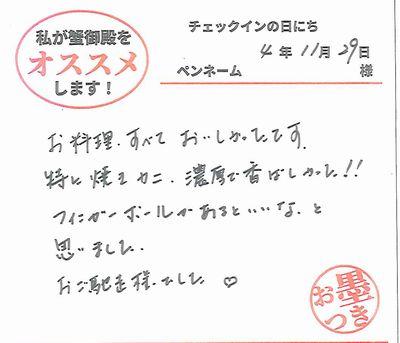 私が蟹御殿を
オススメ
します！
チェックインの日にち
4年11月29日
ペンネーム 様
お料理、すべておいしかったです。
特に焼きカニ、濃厚で香ばしかった!!
フィンガーボールがあるといいな、と
思いました。
おご馳走様でした♡
お墨つき